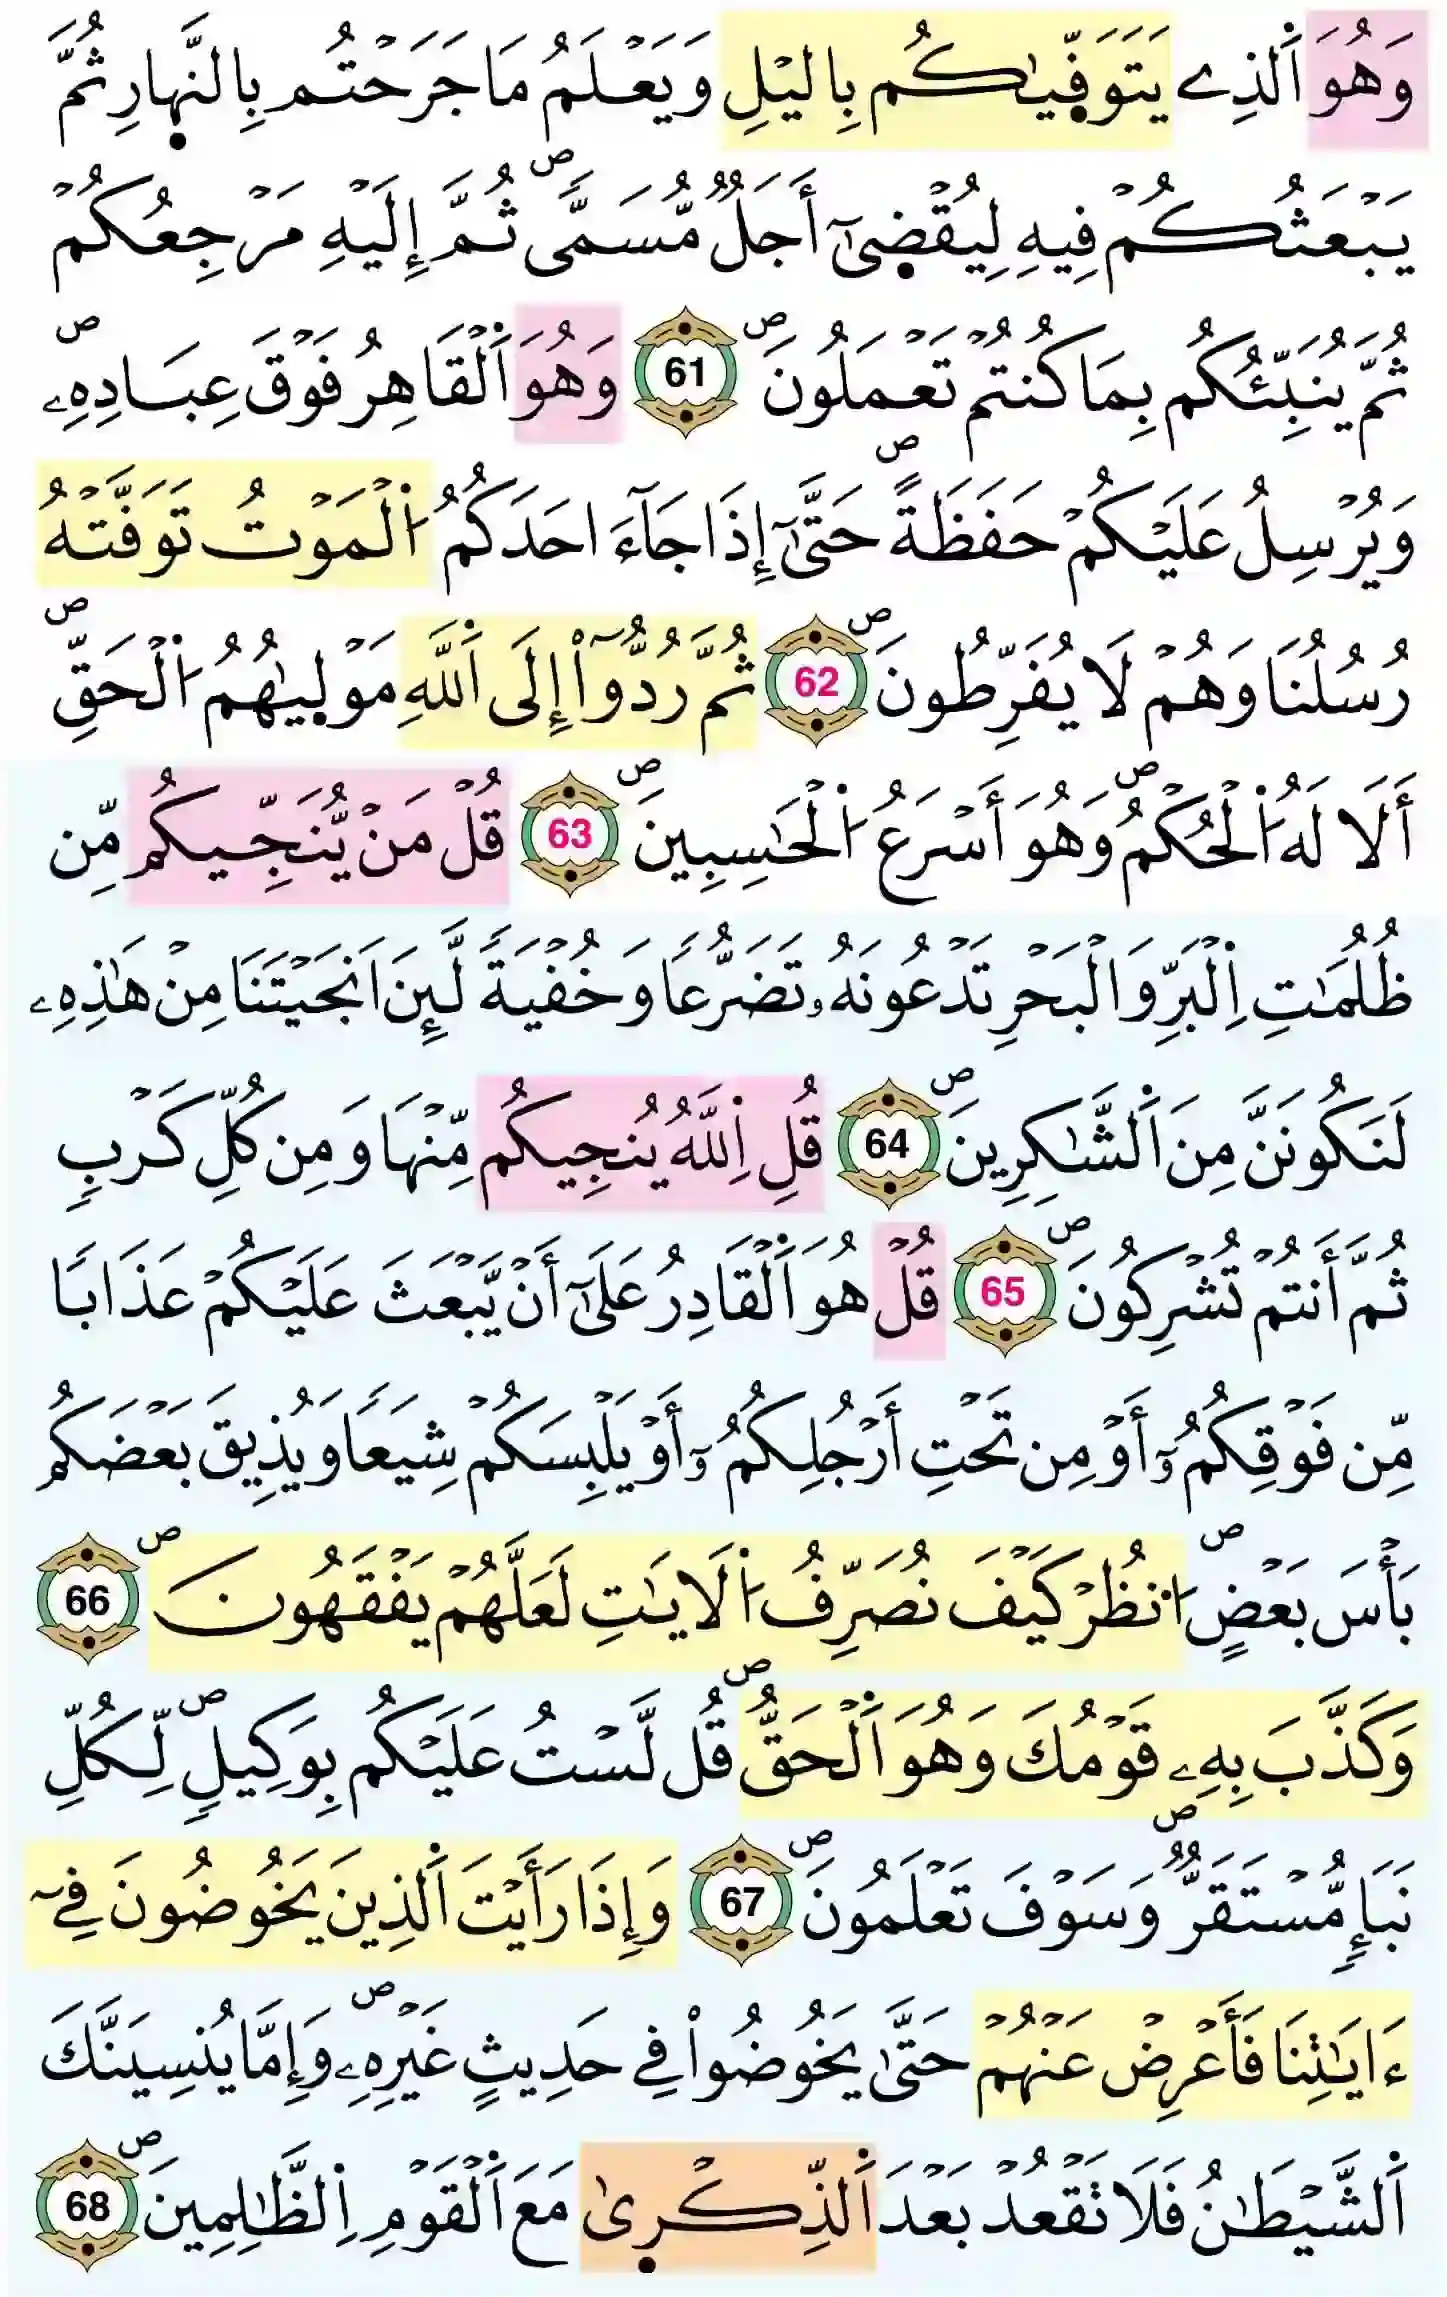 وَهُوَ اَ۬لذِے يَتَوَفّ۪يٰكُم بِاليْلِ وَيَعْلَمُ مَا جَرَحْتُم بِالنَّه۪ارِ ثُمَّ
يَبْعَثُكُمْ فِيهِ لِيُقْض۪ىٰٓ أَجَلٞ مُّسَمّيٗۖ ثُمَّ إِلَيْهِ مَرْجِعُكُمْ
ثُمَّ يُنَبِّئُكُم بِمَا كُنتُمْ تَعْمَلُونَۖ 61 وَهُوَ اَ۬لْقَاهِرُ فَوْقَ عِبَادِهِۦۖ
وَيُرْسِلُ عَلَيْكُمْ حَفَظَةًۖ حَتَّىٰٓ إِذَا جَآءَ احَدَكُمُ اُ۬لْمَوْتُ تَوَفَّتْهُ
رُسُلُنَا وَهُمْ لَا يُفَرِّطُونَۖ 62 ثُمَّ رُدُّوٓاْ إِلَى اَ۬للَّهِ مَوْل۪يٰهُمُ اُ۬لْحَقِّۖ
أَلَا لَهُ اُ۬لْحُكْمُۖ وَهُوَ أَسْرَعُ اُ۬لْحَٰسِبِينَۖ 63 قُلْ مَنْ يُّنَجِّيكُم مِّن
ظُلُمَٰتِ اِ۬لْبَرِّ وَالْبَحْرِ تَدْعُونَهُۥ تَضَرُّعاٗ وَخُفْيَةٗ لَّئِنَ اَنجَيْتَنَا مِنْ هَٰذِهِۦ
لَنَكُونَنَّ مِنَ اَ۬لشَّٰكِرِينَۖ 64 قُلِ اِ۬للَّهُ يُنجِيكُم مِّنْهَا وَمِن كُلِّ كَرْبٖ
ثُمَّ أَنتُمْ تُشْرِكُونَۖ 65 قُلْ هُوَ اَ۬لْقَادِرُ عَلَىٰٓ أَنْ يَّبْعَثَ عَلَيْكُمْ عَذَاباٗ
مِّن فَوْقِكُمُۥٓ أَوْ مِن تَحْتِ أَرْجُلِكُمُۥٓ أَوْ يَلْبِسَكُمْ شِيَعاٗ وَيُذِيقَ بَعْضَكُم
بَأْسَ بَعْضٍۖ اُ۟نظُرْ كَيْفَ نُصَرِّفُ اُ۬لَايَٰتِ لَعَلَّهُمْ يَفْقَهُونَۖ 66
وَكَذَّبَ بِهِۦ قَوْمُكَ وَهُوَ اَ۬لْحَقُّۖ قُل لَّسْتُ عَلَيْكُم بِوَكِيلٖۖ لِّكُلِّ
نَبَإٖ مُّسْتَقَرّٞۖ وَسَوْفَ تَعْلَمُونَۖ 67 وَإِذَا رَأَيْتَ اَ۬لذِينَ يَخُوضُونَ فِےٓ
ءَايَٰتِنَا فَأَعْرِضْ عَنْهُمْ حَتَّىٰ يَخُوضُواْ فِے حَدِيثٍ غَيْرِهِۦۖ وَإِمَّا يُنسِيَنَّكَ
اَ۬لشَّيْطَٰنُ فَلَا تَقْعُدْ بَعْدَ اَ۬لذِّكْر۪ىٰ مَعَ اَ۬لْقَوْمِ اِ۬لظَّٰلِمِينَۖ 68